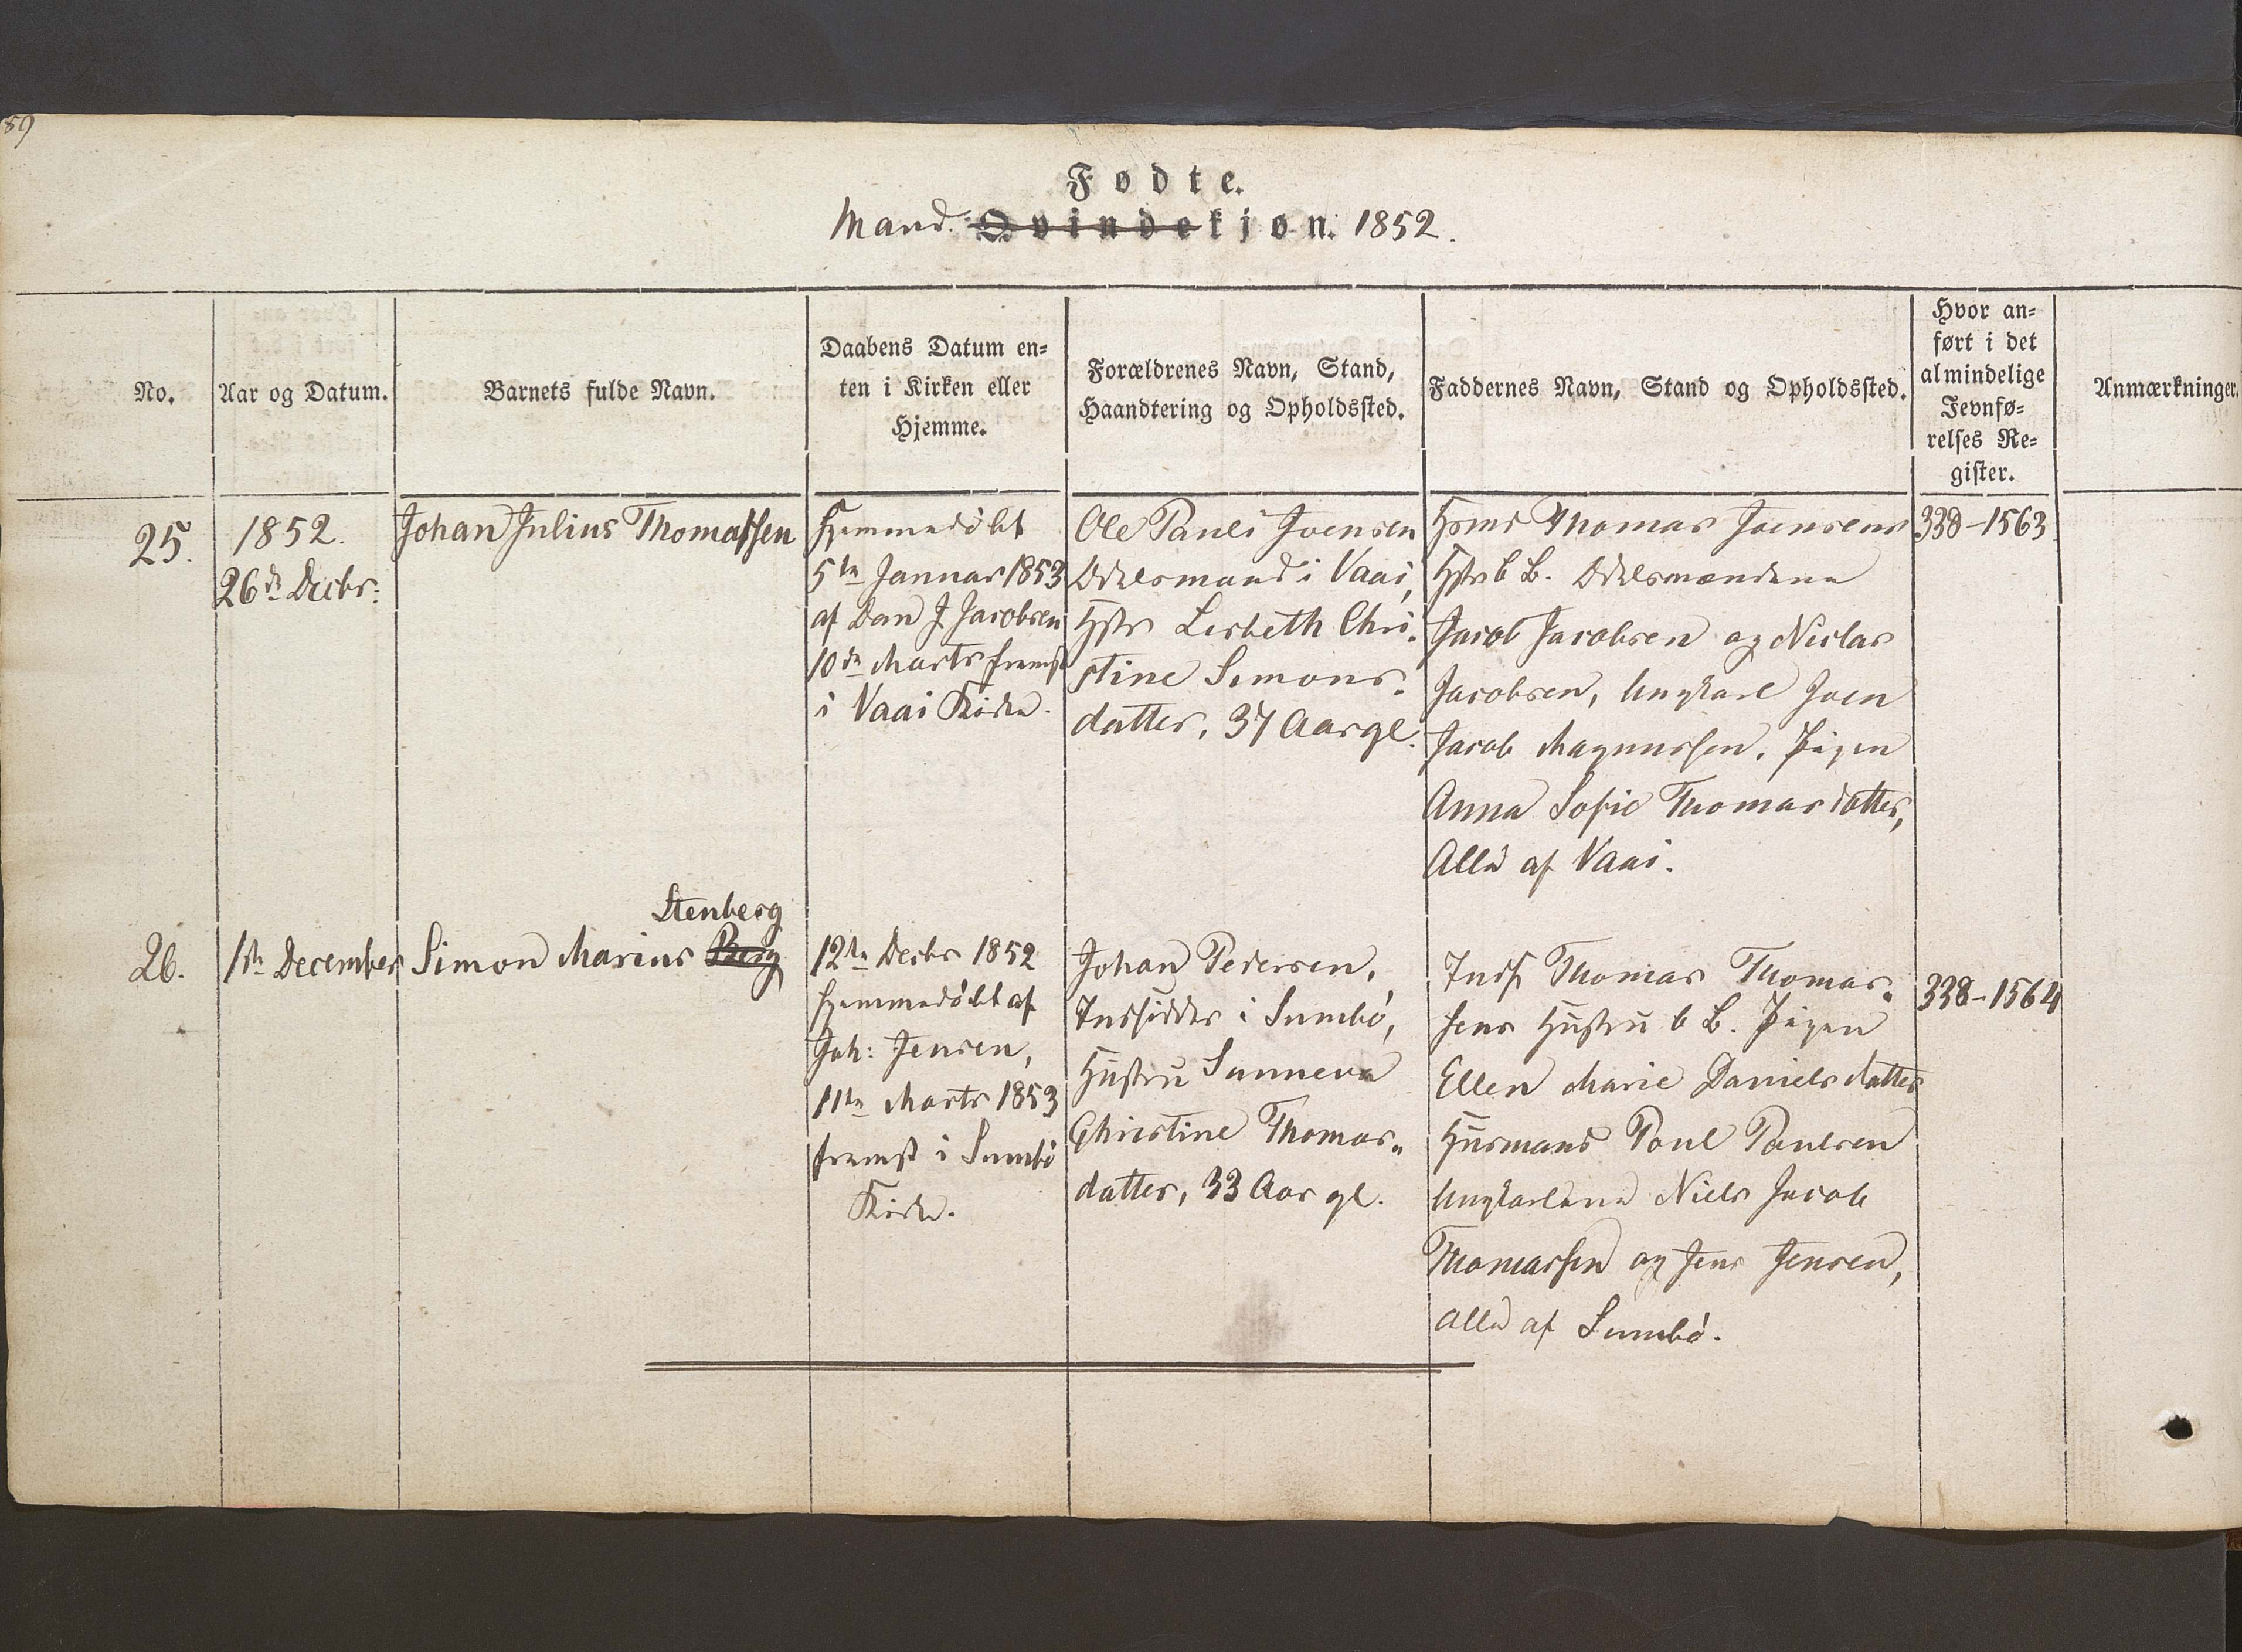 89
Fødte.
Mand. Qvindekjøn. 1852.
No.
Aar og Datum.
Barnets fulde Navn.
Daabens Datum en-
ten i Kirken eller
Hjemme.
Forældrenes Navn, Stand,
Haandtering og Opholdssted.
Faddernes Navn, Stand og Opholdssted.
Hvor an-
ført i det
almindelige
Jevnfø-
relses Re-
gister.
Anmærkninger.
25.
1852.
26de Decbr:
Johan Julius Thomassen
Hjemmedöbt
5te Januar 1853
af Dan J Jacobsen
10de Marts fremst
i Vaai Kirke.
Ole Pauli Joensen
Odelsmand i Vaai,
Hstr Lisbeth Chri-
stine Simons-
datter, 37 Aar gl.
Hsmd Thomas Joensens
Hstr b B. Odelsmændene
Jacob Jacobsen og Niclas
Jacobsen, Ungkarl Joen
Jacob Magnussen, Pigen
Anna Sofie Thomasdatter,
Alle af Vaai.
338-1563
26.
1ste December
Stenberg
Simon Marius Berg
12te Decbr 1852
hjemmedöbt af
Joh: Jensen,
11te Marts 1853
fremst i Sumbö
Kirke.
Johan Pedersen,
Indsidder i Sumbö,
Hustru Sunneva
Christine Thomas-
datter, 33 Aar gl.
Inds Thomas Thomas-
sens Hustru b B. Pigen
Ellen Marie Danielsdatter
Husmand Poul Poulsen
Ungkarlene Niels Jacob
Thomassen og Jens Jensen,
alle af Sumbö.
338-1564